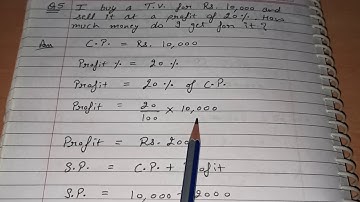 Q5 I buy a T.V. for Rs. 10,000 and
sell it at a profit of 20%. How
much money do I get for it?
Ans C.P. = Rs. 10,000
Profit % = 20%
Profit = 20% of C.P.
Profit = 20/100 × 10,000
Profit = Rs. 200
S.P. = C.P. + Profit
S.P. = 10,000 + 2000